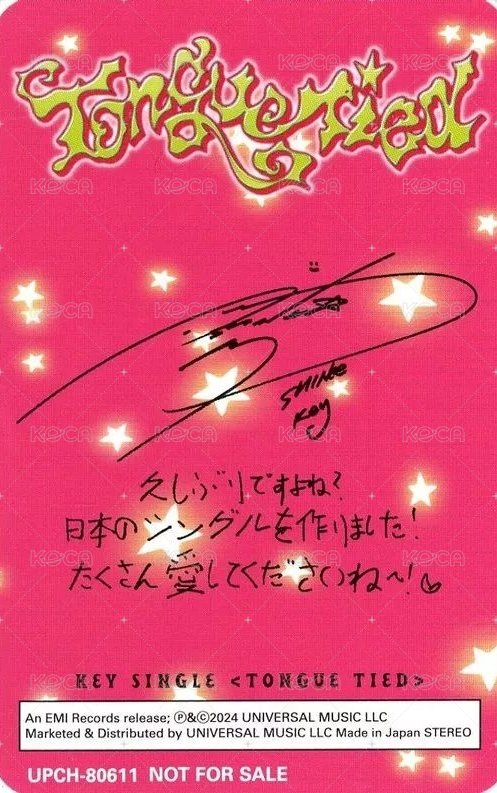 Tongue Tied
SHINee
Key
久しぶりですよね?
日本のシングルを作りました!
たくさん愛してくださいね~!
KEY SINGLE <TONGUE TIED>
An EMI Records release; ℗&©2024 UNIVERSAL MUSIC LLC
Marketed & Distributed by UNIVERSAL MUSIC LLC Made in Japan STEREO
UPCH-80611 NOT FOR SALE
KOCA